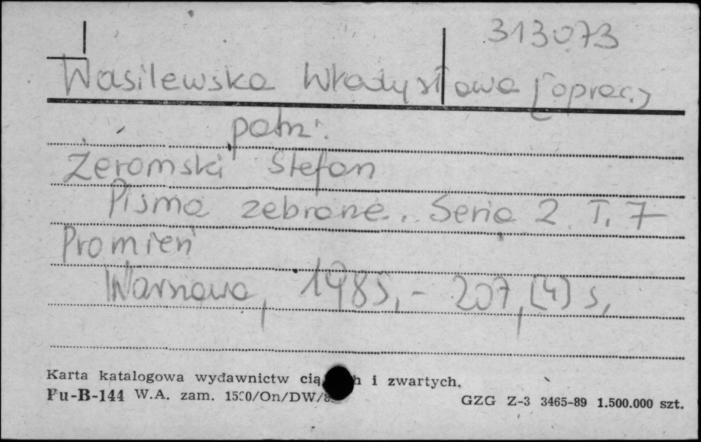 313073
Wasilewska Władysława [oprac.]
patrz:
Żeromski Stefan
Pisma zebrane. Seria 2 T. 7
Promień
Warszawa, 1985, - 207, (4) s,
Karta katalogowa wydawnictw i zwartych.
Pu-B-144 W.A. zam. 1500/On/DW/
GZG Z-3 3465-89 1.500.000 szt.